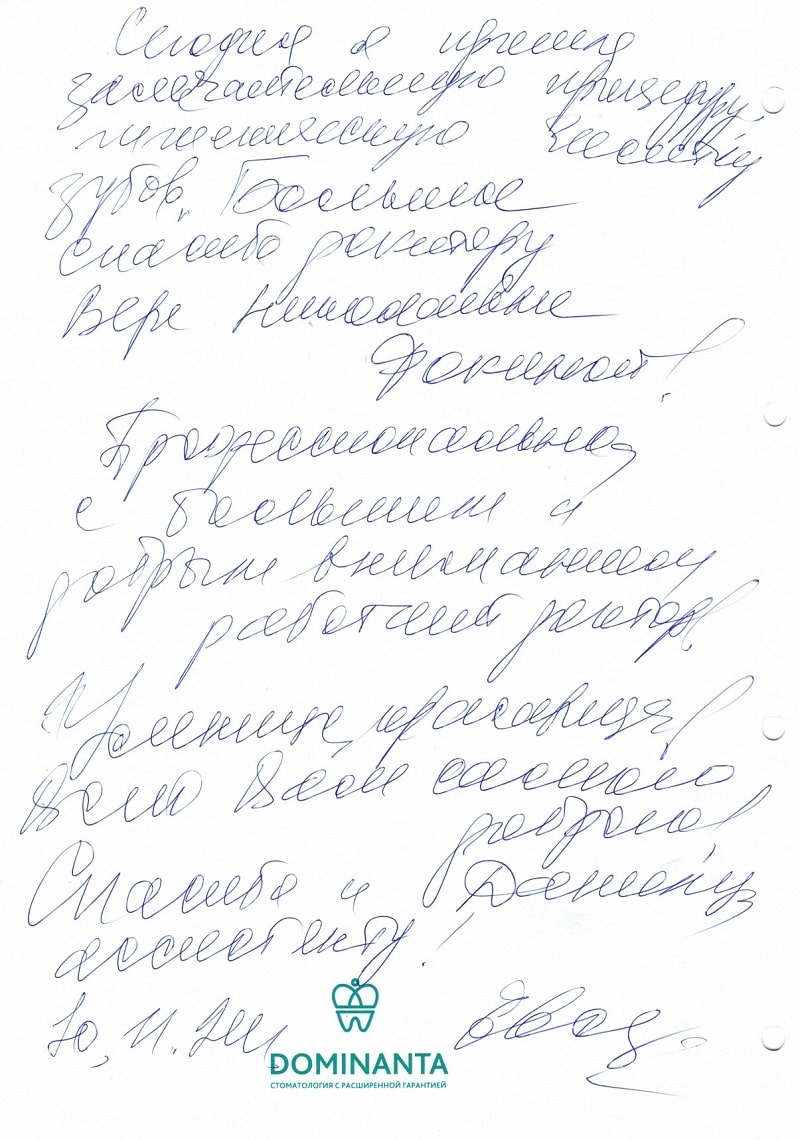 Сегодня я прошла
замечательную процедуру,
гигиеническую чистку
зубов. Большое
спасибо доктору
Вере Николаевне
Фокиной!
Профессионально,
с большим и
добрым вниманием
работает доктор!
Умница, красавица!
Всего Вам самого
доброго!
Спасибо и
ассистенту!
DOMINANTA
СТОМАТОЛОГИЯ С РАСШИРЕННОЙ ГАРАНТИЕЙ